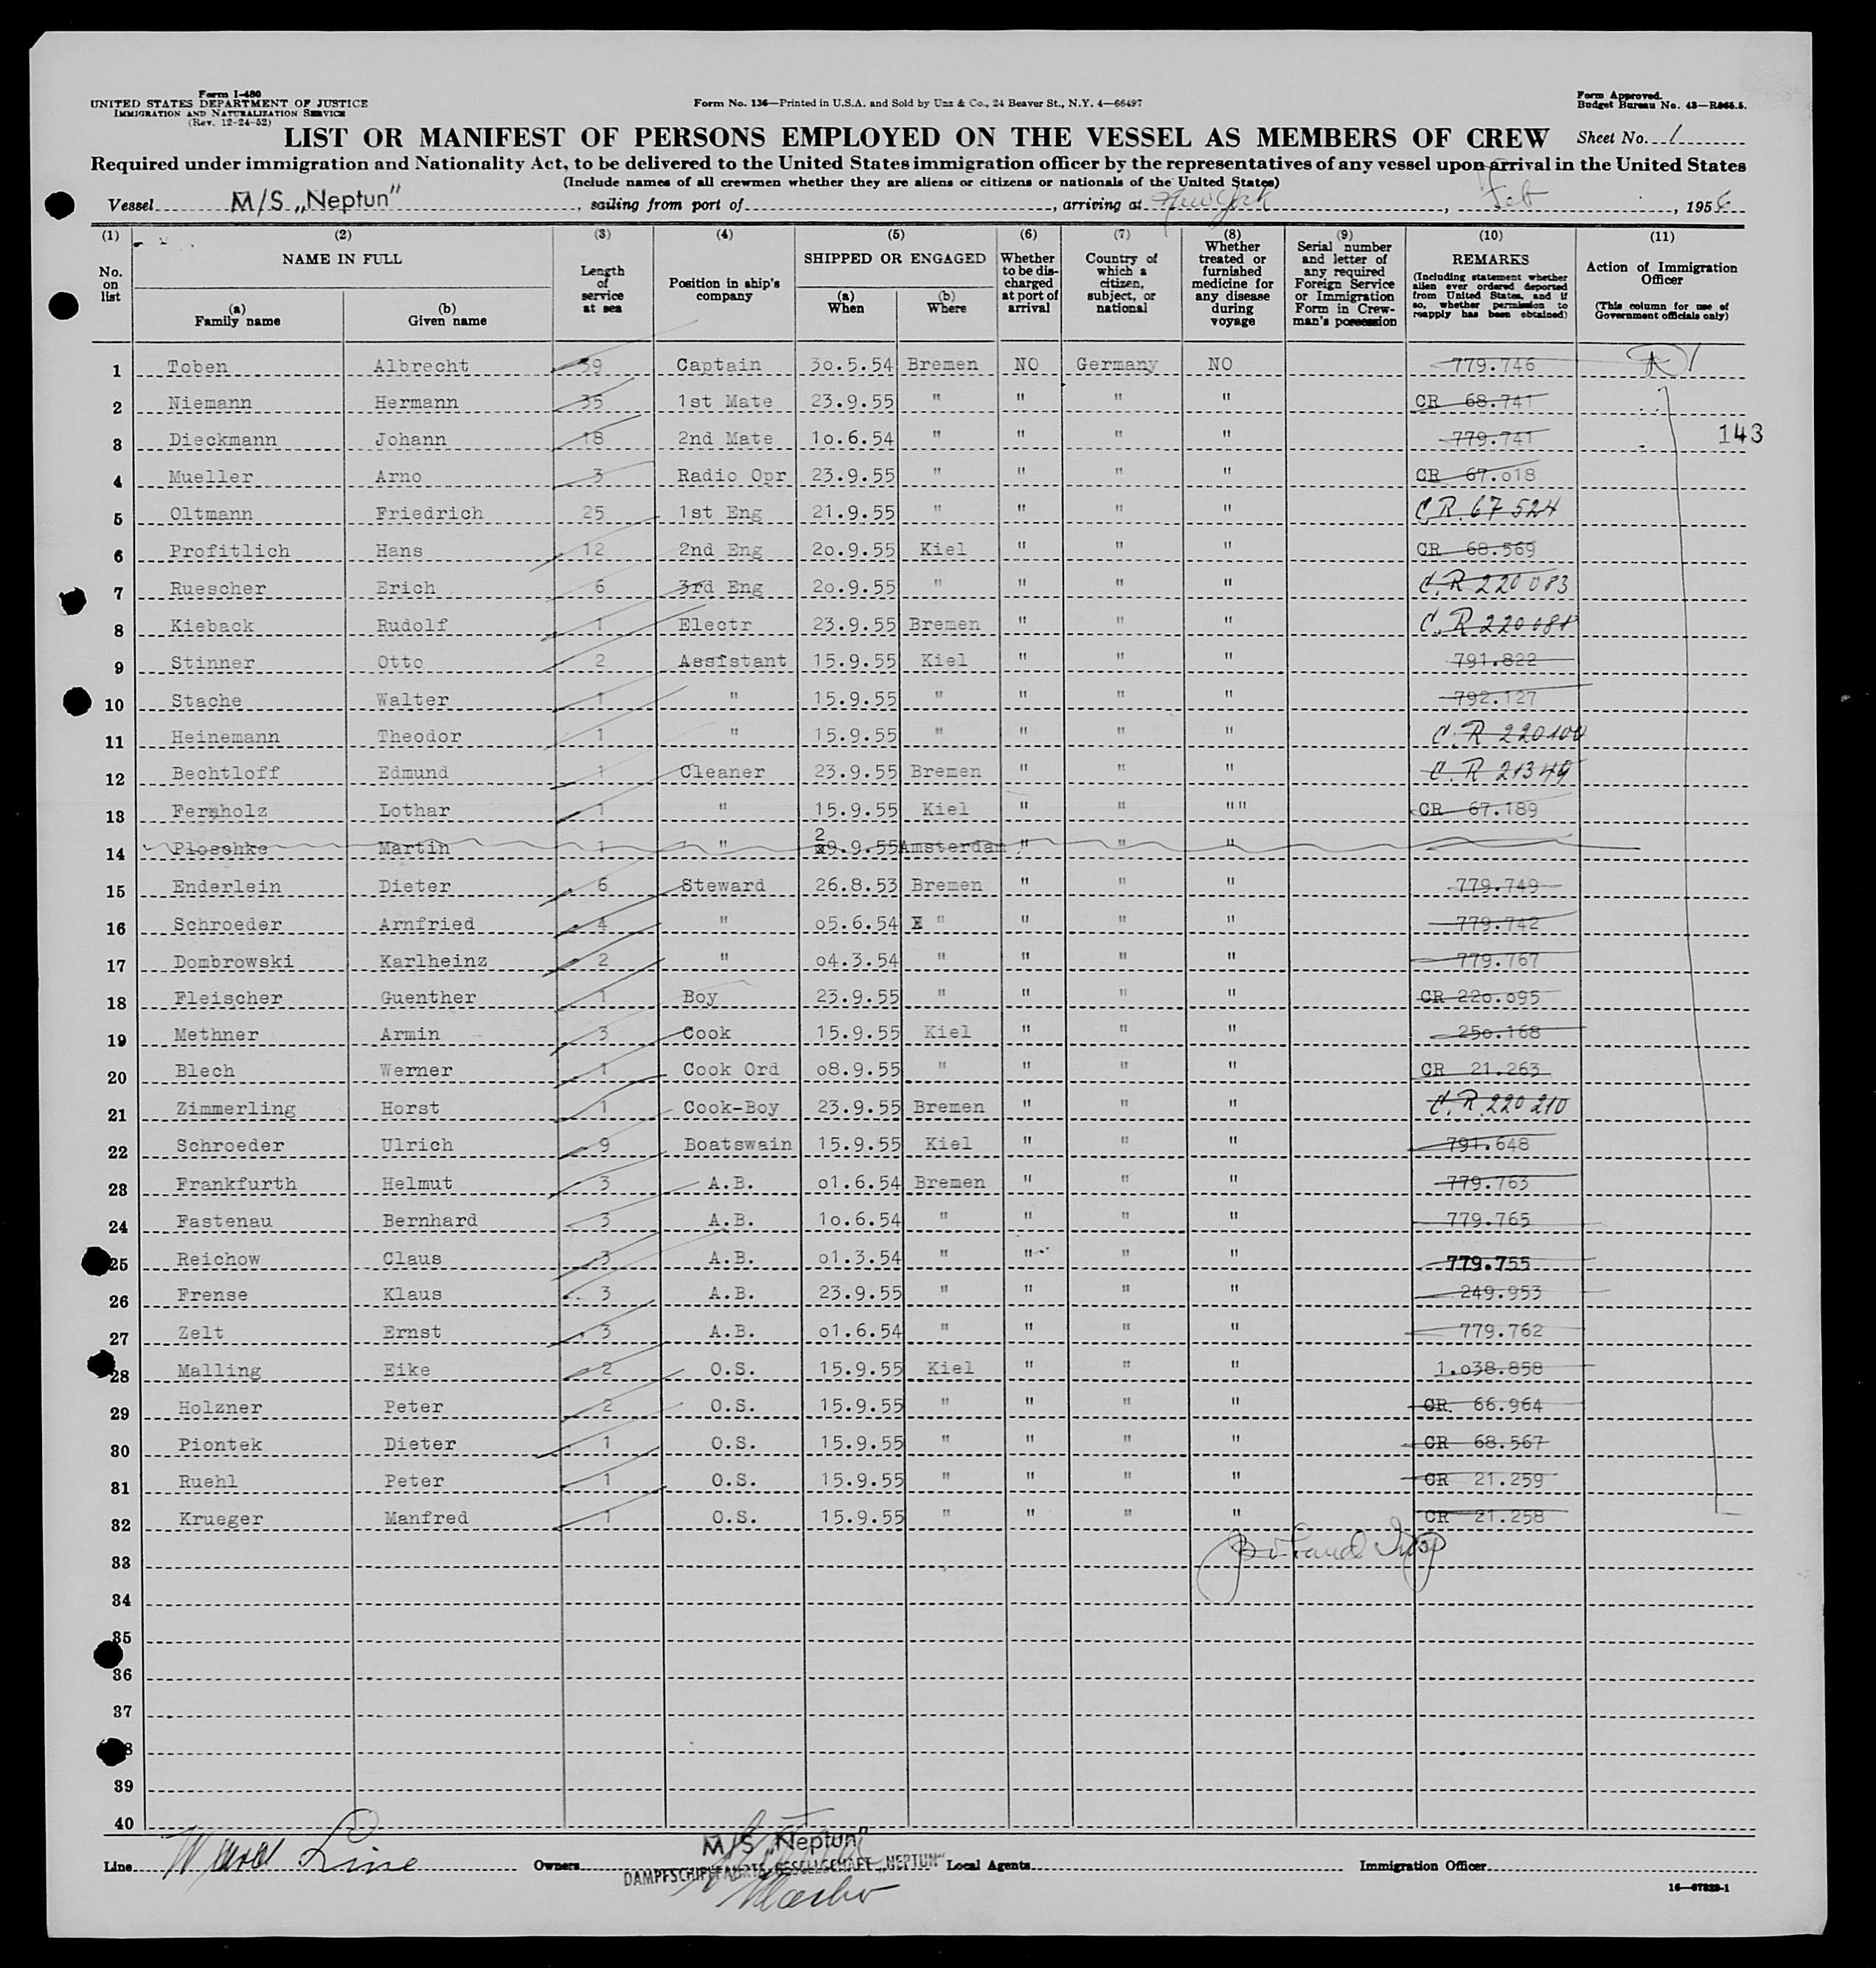 Form I-480
UNITED STATES DEPARTMENT OF JUSTICE
IMMIGRATION AND NATURALIZATION SERVICE
(Rev. 12-24-52)
Form No. 136—Printed in U.S.A. and Sold by Unz & Co., 24 Beaver St., N.Y. 4—66497
Form Approved.
Budget Bureau No. 43—R065.5.
LIST OR MANIFEST OF PERSONS EMPLOYED ON THE VESSEL AS MEMBERS OF CREW Sheet No. 1
Required under immigration and Nationality Act, to be delivered to the United States immigration officer by the representatives of any vessel upon arrival in the United States
(Include names of all crewmen whether they are aliens or citizens or nationals of the United States)
Vessel M/S „Neptun", sailing from port of , arriving at New York, Feb, 1956
(1) (2) (3) (4) (5) (6) (7) (8) (9) (10) (11)
No. on list NAME IN FULL (a) Family name (b) Given name Length of service at sea Position in ship's company SHIPPED OR ENGAGED (a) When (b) Where Whether to be discharged at port of arrival Country of which a citizen, subject, or national Whether treated or furnished medicine for any disease during voyage Serial number and letter of any required Foreign Service or Immigration Form in Crewman's possession REMARKS (Including statement whether alien ever ordered deported from United States, and if so, whether permission to reapply has been obtained) Action of Immigration Officer (This column for use of Government officials only)
1 Toben Albrecht 39 Captain 3o.5.54 Bremen NO Germany NO 779.746
2 Niemann Hermann 35 1st Mate 23.9.55 " " " " CR 68.741
3 Dieckmann Johann 18 2nd Mate 1o.6.54 " " " " 779.741 143
4 Mueller Arno 3 Radio Opr 23.9.55 " " " " CR 67.o18
5 Oltmann Friedrich 25 1st Eng 21.9.55 " " " " C.R. 67 524
6 Profitlich Hans 12 2nd Eng 2o.9.55 Kiel " " " CR 68.569
7 Ruescher Erich 6 3rd Eng 2o.9.55 " " " " C.R 220 083
8 Kieback Rudolf 1 Electr 23.9.55 Bremen " " " C.R 220081
9 Stinner Otto 2 Assistant 15.9.55 Kiel " " " 791.822
10 Stache Walter 1 " 15.9.55 " " " " 792.127
11 Heinemann Theodor 1 " 15.9.55 " " " " C.R 220100
12 Bechtloff Edmund 1 Cleaner 23.9.55 Bremen " " " C.R 21349
13 Fernholz Lothar 1 " 15.9.55 Kiel " " "" CR 67.189
14 Ploschke Martin 1 " 29.9.55 Amsterdam " " "
15 Enderlein Dieter 6 Steward 26.8.53 Bremen " " " 779.749
16 Schroeder Arnfried 4 " o5.6.54 " " " " 779.742
17 Dombrowski Karlheinz 2 " o4.3.54 " " " " 779.767
18 Fleischer Guenther 1 Boy 23.9.55 " " " " CR 22o.o95
19 Methner Armin 3 Cook 15.9.55 Kiel " " " 25o.168
20 Blech Werner 1 Cook Ord o8.9.55 " " " " CR 21.263
21 Zimmerling Horst 1 Cook-Boy 23.9.55 Bremen " " " C.R. 220 210
22 Schroeder Ulrich 9 Boatswain 15.9.55 Kiel " " " 791.648
23 Frankfurth Helmut 3 A.B. o1.6.54 Bremen " " " 779.763
24 Fastenau Bernhard 3 A.B. 1o.6.54 " " " " 779.765
25 Reichow Claus 3 A.B. o1.3.54 " " " " 779.755
26 Frense Klaus 3 A.B. 23.9.55 " " " " 249.953
27 Zelt Ernst 3 A.B. o1.6.54 " " " " 779.762
28 Malling Eike 2 O.S. 15.9.55 Kiel " " " 1.o38.858
29 Holzner Peter 2 O.S. 15.9.55 " " " " CR. 66.964
30 Piontek Dieter 1 O.S. 15.9.55 " " " " CR 68.567
31 Ruehl Peter 1 O.S. 15.9.55 " " " " CR 21.259
32 Krueger Manfred 1 O.S. 15.9.55 " " " " CR 21.258
33
34
35
36
37
38
39
40
M/S „Neptun"
Line Line Owners DAMPFSCHIFFFAHRTS-GESELLSCHAFT „NEPTUN" Local Agents Immigration Officer
16—67829-1